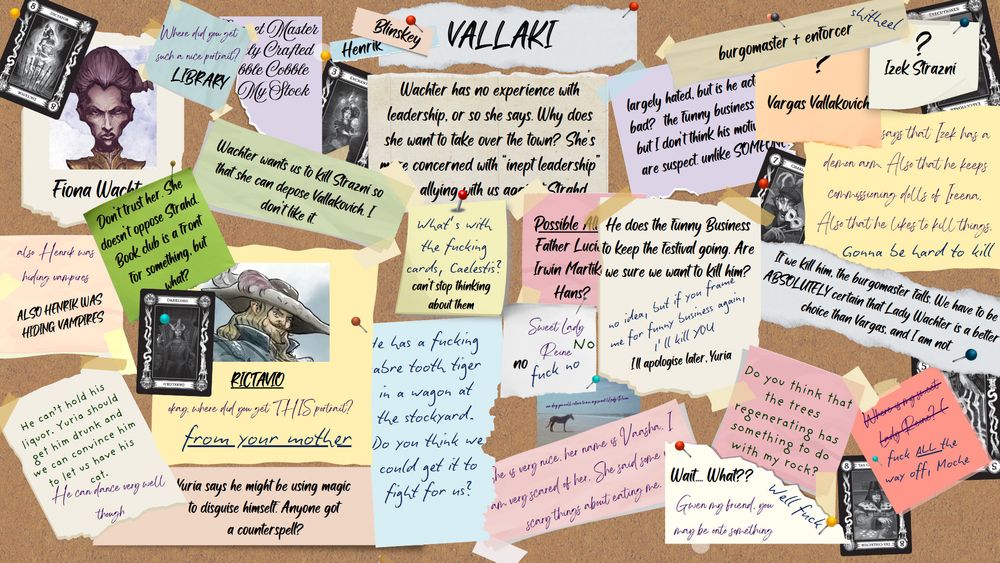 Where did you get
such a nice portrait?
LIBRARY
Fiona Wacht
et Master
ly Crafted
bble Cobble
My Stock
Blinskey
Henrik
VALLAKI
Wachter has no experience with
leadership, or so she says. Why does
she want to take over the town? She's
more concerned with "inept leadership"
allying with us against Strahd
burgomaster + enforcer
shitheel
?
Izek Strazni
?
Vargas Vallakovich
largely hated, but is he act
bad? the funny business
but I don't think his motiv
are suspect. unlike SOMEON
says that Izek has a
demon arm. Also that he keeps
commissioning dolls of Ireena.
Also that he likes to kill things.
Gonna be hard to kill
Wachter wants us to kill Strazni so
that she can depose Vallakovich. I
don't like it.
Don't trust her. She
doesn't oppose Strahd.
Book club is a front
for something, but
what?
also Henrik was
hiding vampires
ALSO HENRIK WAS
HIDING VAMPIRES
What's with
the fucking
cards, Caelestis?
can't stop thinking
about them
Possible Al
Father Luci
Irwin Martik
Hans?
He does the Funny Business
to keep the festival going. Are
we sure we want to kill him?
no idea, but if you frame
me for funny business again,
I'll kill YOU
I'll apologise later, Yuria
If we kill him, the burgomaster falls. We have to be
ABSOLUTELY certain that Lady Wachter is a better
choice than Vargas, and I am not.
DARKLORD
RICTAVIO
okay, where did you get THIS portrait?
from your mother
He can't hold his
liquor. Yuria should
get him drunk and
we can convince him
to let us have his
cat.
He can dance very well
though
Yuria says he might be using magic
to disguise himself. Anyone got
a counterspell?
He has a fucking
sabre tooth tiger
in a wagon at
the stockyard.
Do you think we
could get it to
fight for us?
Sweet Lady
Reine
NO
no
fuck no
She is very nice, her name is Vaasha. I
am very scared of her. She said some
scary things about eating me.
Do you think that
the trees
regenerating has
something to do
with my rock?
Wait... What??
Gwen my friend, you
may be onto something
Well fuck!
Where is my sweet
Lady Reine?!
fuck ALL the
way off, Moche